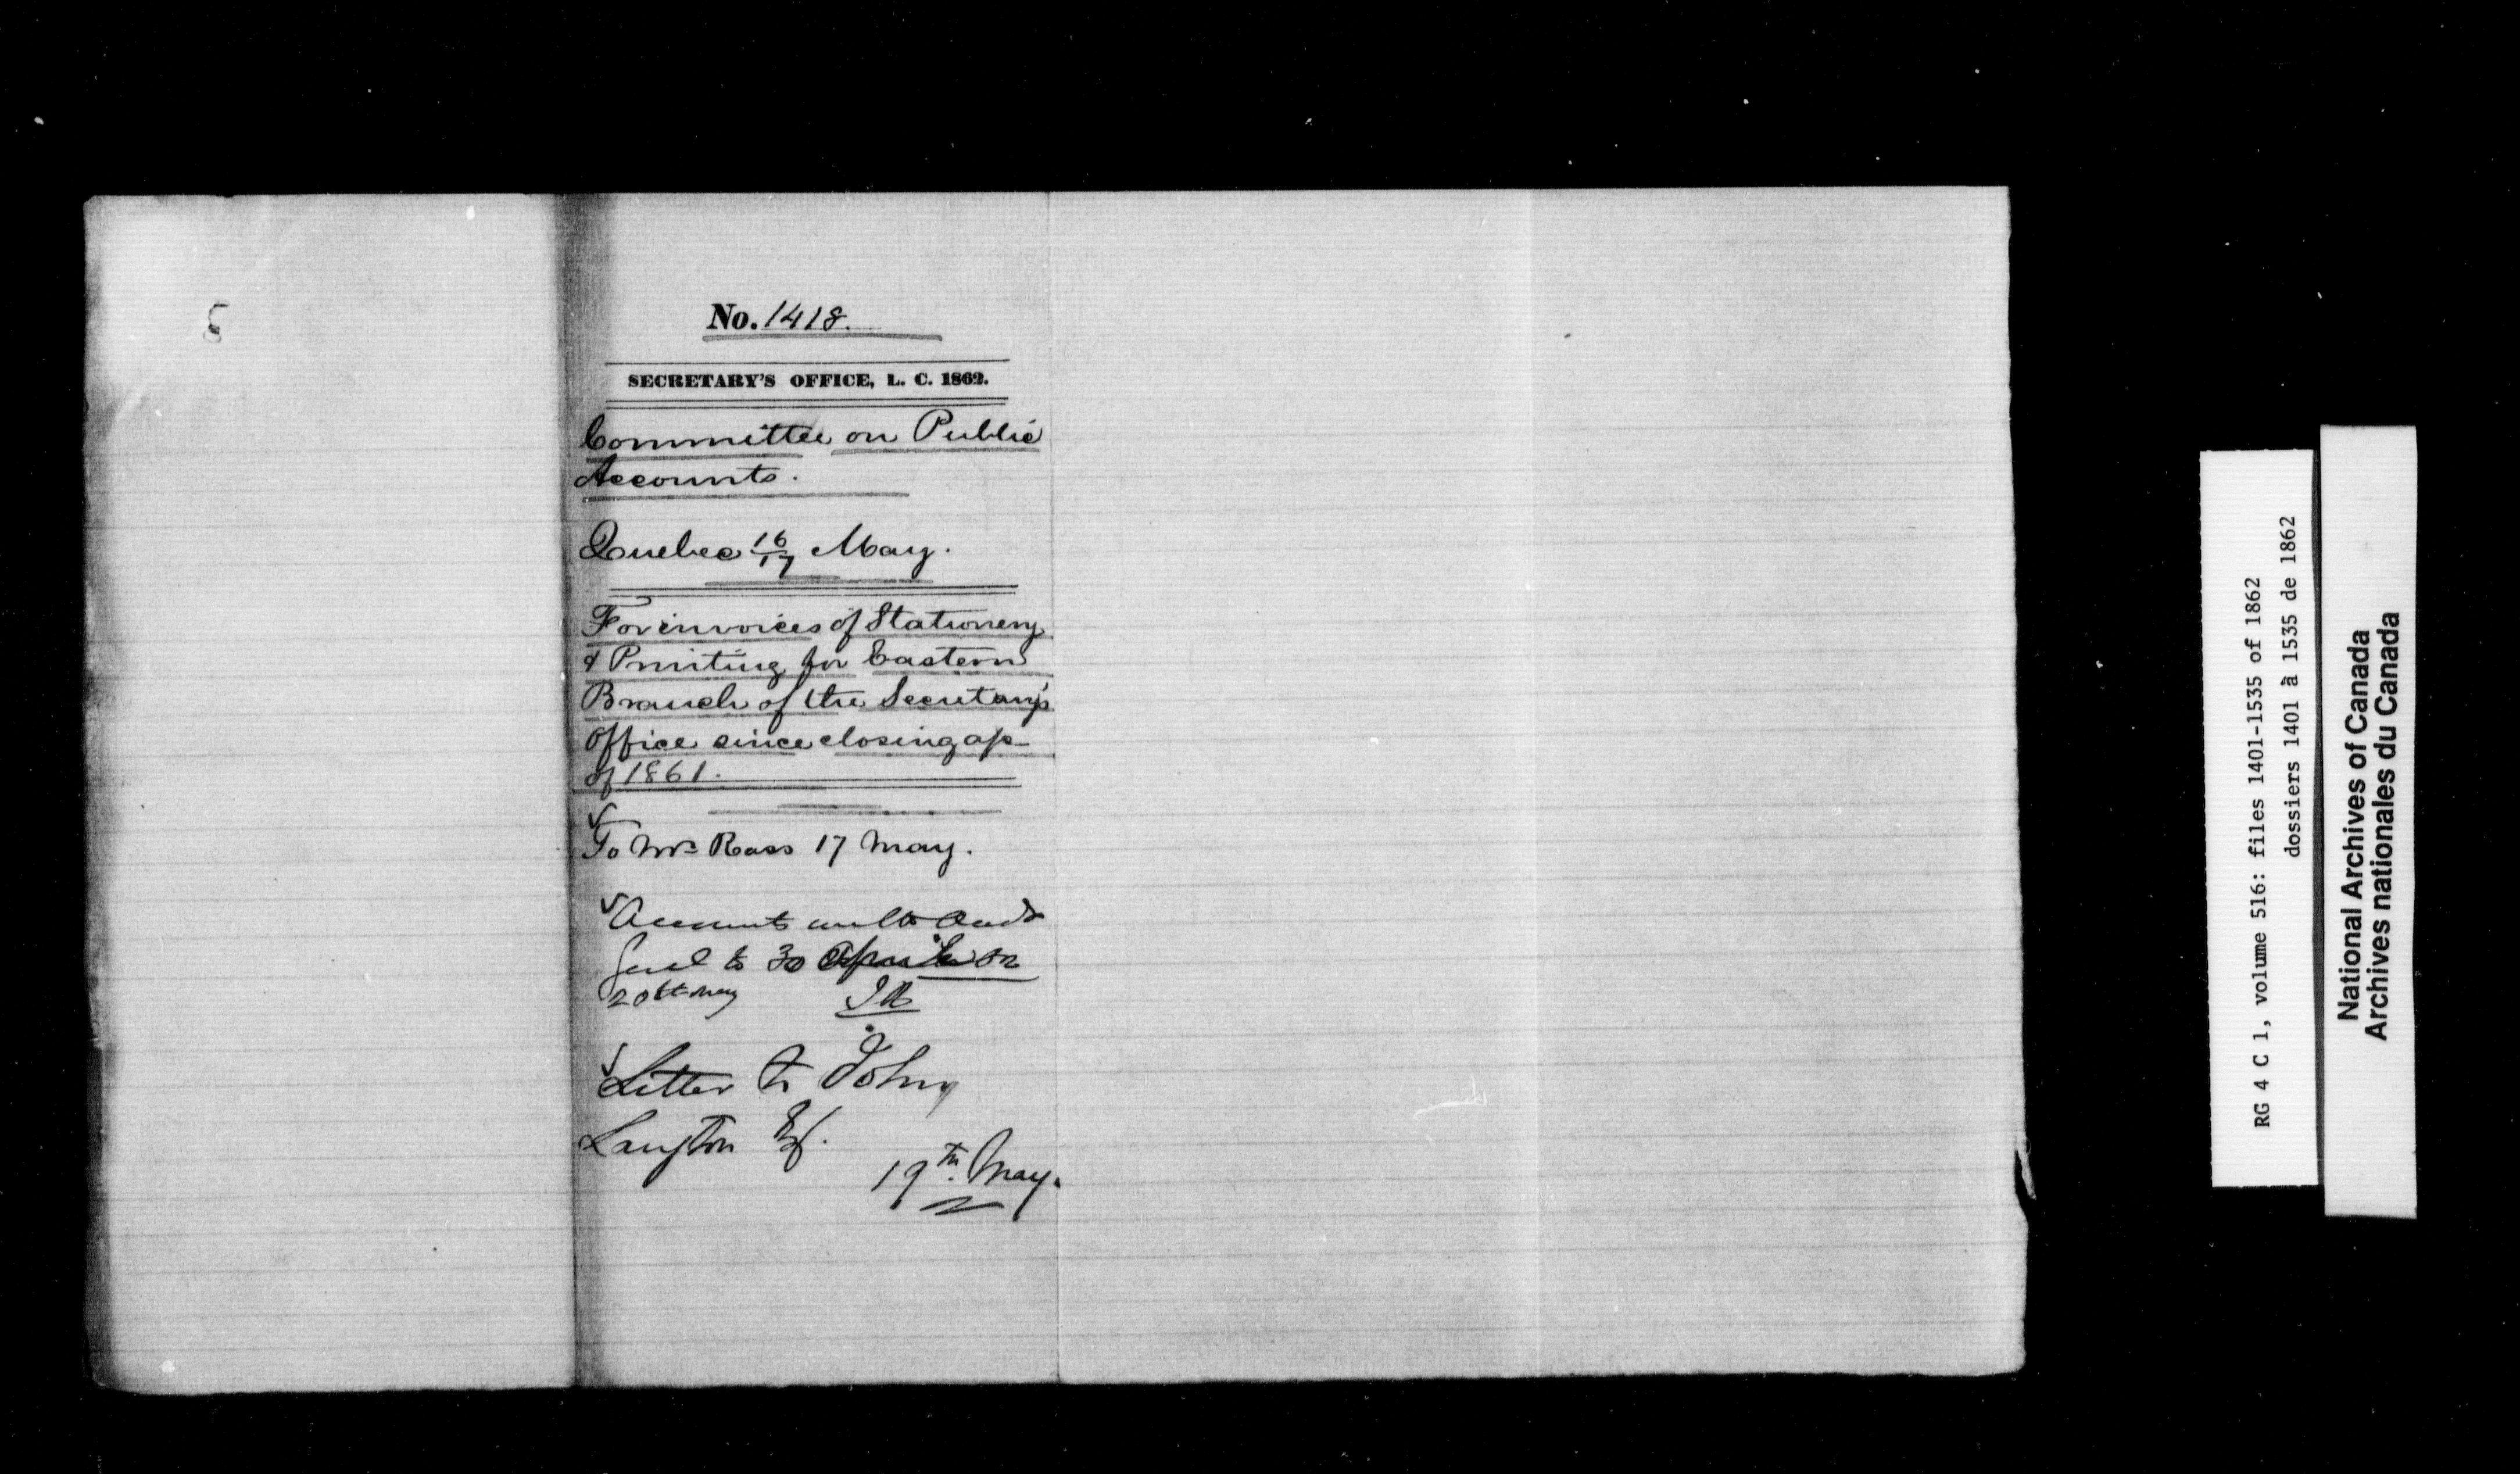 No. 1418.
SECRETARY'S OFFICE, L. C. 1862.
Committee on Public
Accounts.
Quebec 16/17 May.
For invoices of Stationery
& Printing for Eastern
Branch of the Secretary's
Office since closing a/c
of 1861.
To Mr Ross 17 May.
Accounts
to 30 April
20th May
Letter to John
Langton Esq.
19th May.
RG 4 C 1, volume 516: files 1401-1535 of 1862
dossiers 1401 à 1535 de 1862
National Archives of Canada
Archives nationales du Canada